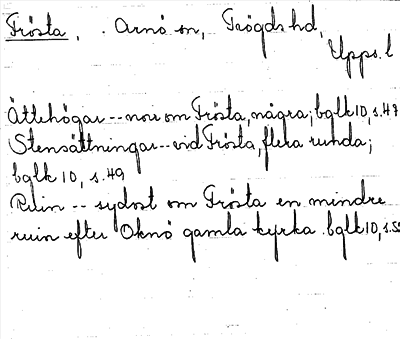 Frösta, . Arnö sn, Trögds hd,
Upps. l
Ättehögar -- nov om Frösta, några; bglk 10, s. 49
Stensättningar -- vid Frösta, flera runda;
bglk 10, s. 49
Ruin -- sydost om Frösta en mindre
ruin efter Oknö gamla kyrka. bglk 10, s. 55